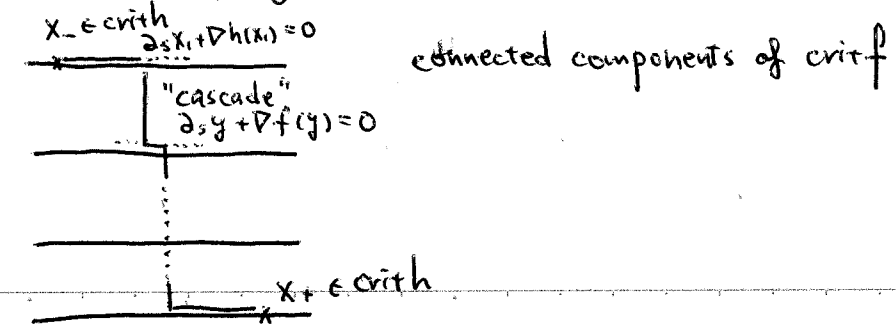 x_- ∈ crit h
∂_s x_1 + ∇h(x_1) = 0
connected components of crit f
"cascade"
∂_s y + ∇f(y) = 0
x_+ ∈ crit h